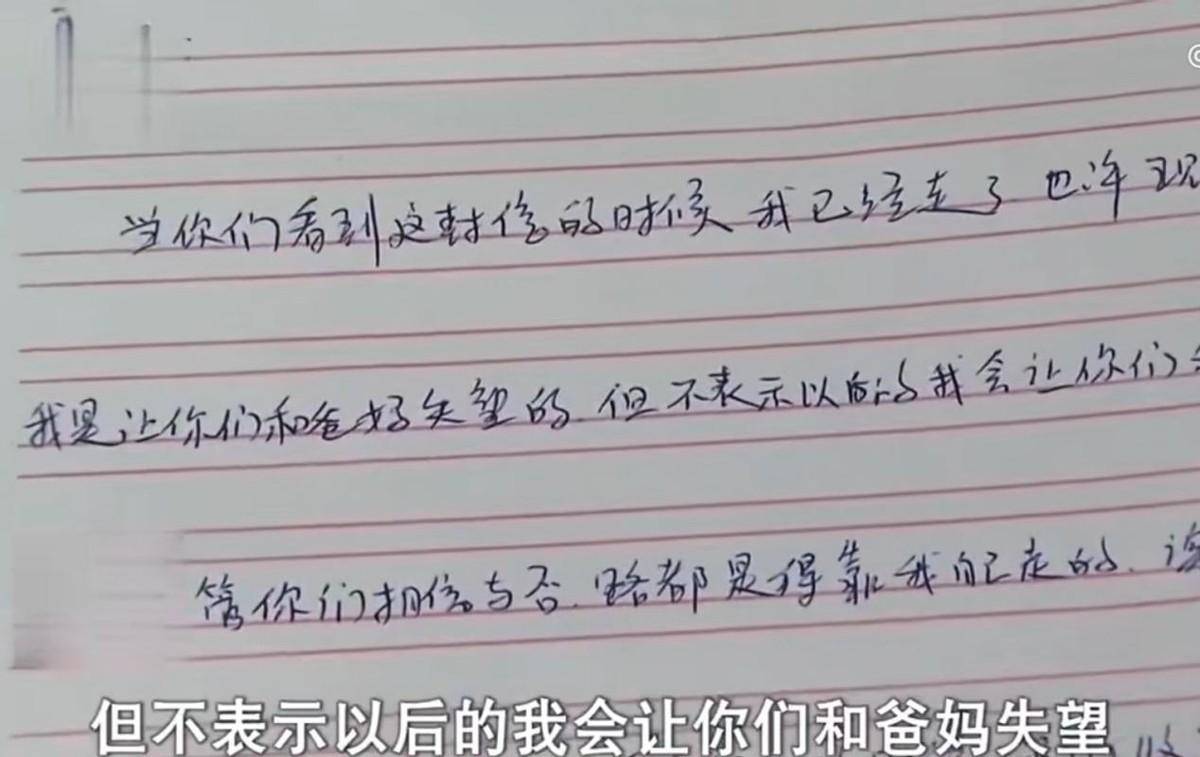 当你们看到这封信的时候 我已经走了 也许现
我是让你们和爸妈失望的.但不表示以后的我会让你们
管你们相信与否.路都是得靠我自己走的.
但不表示以后的我会让你们和爸妈失望